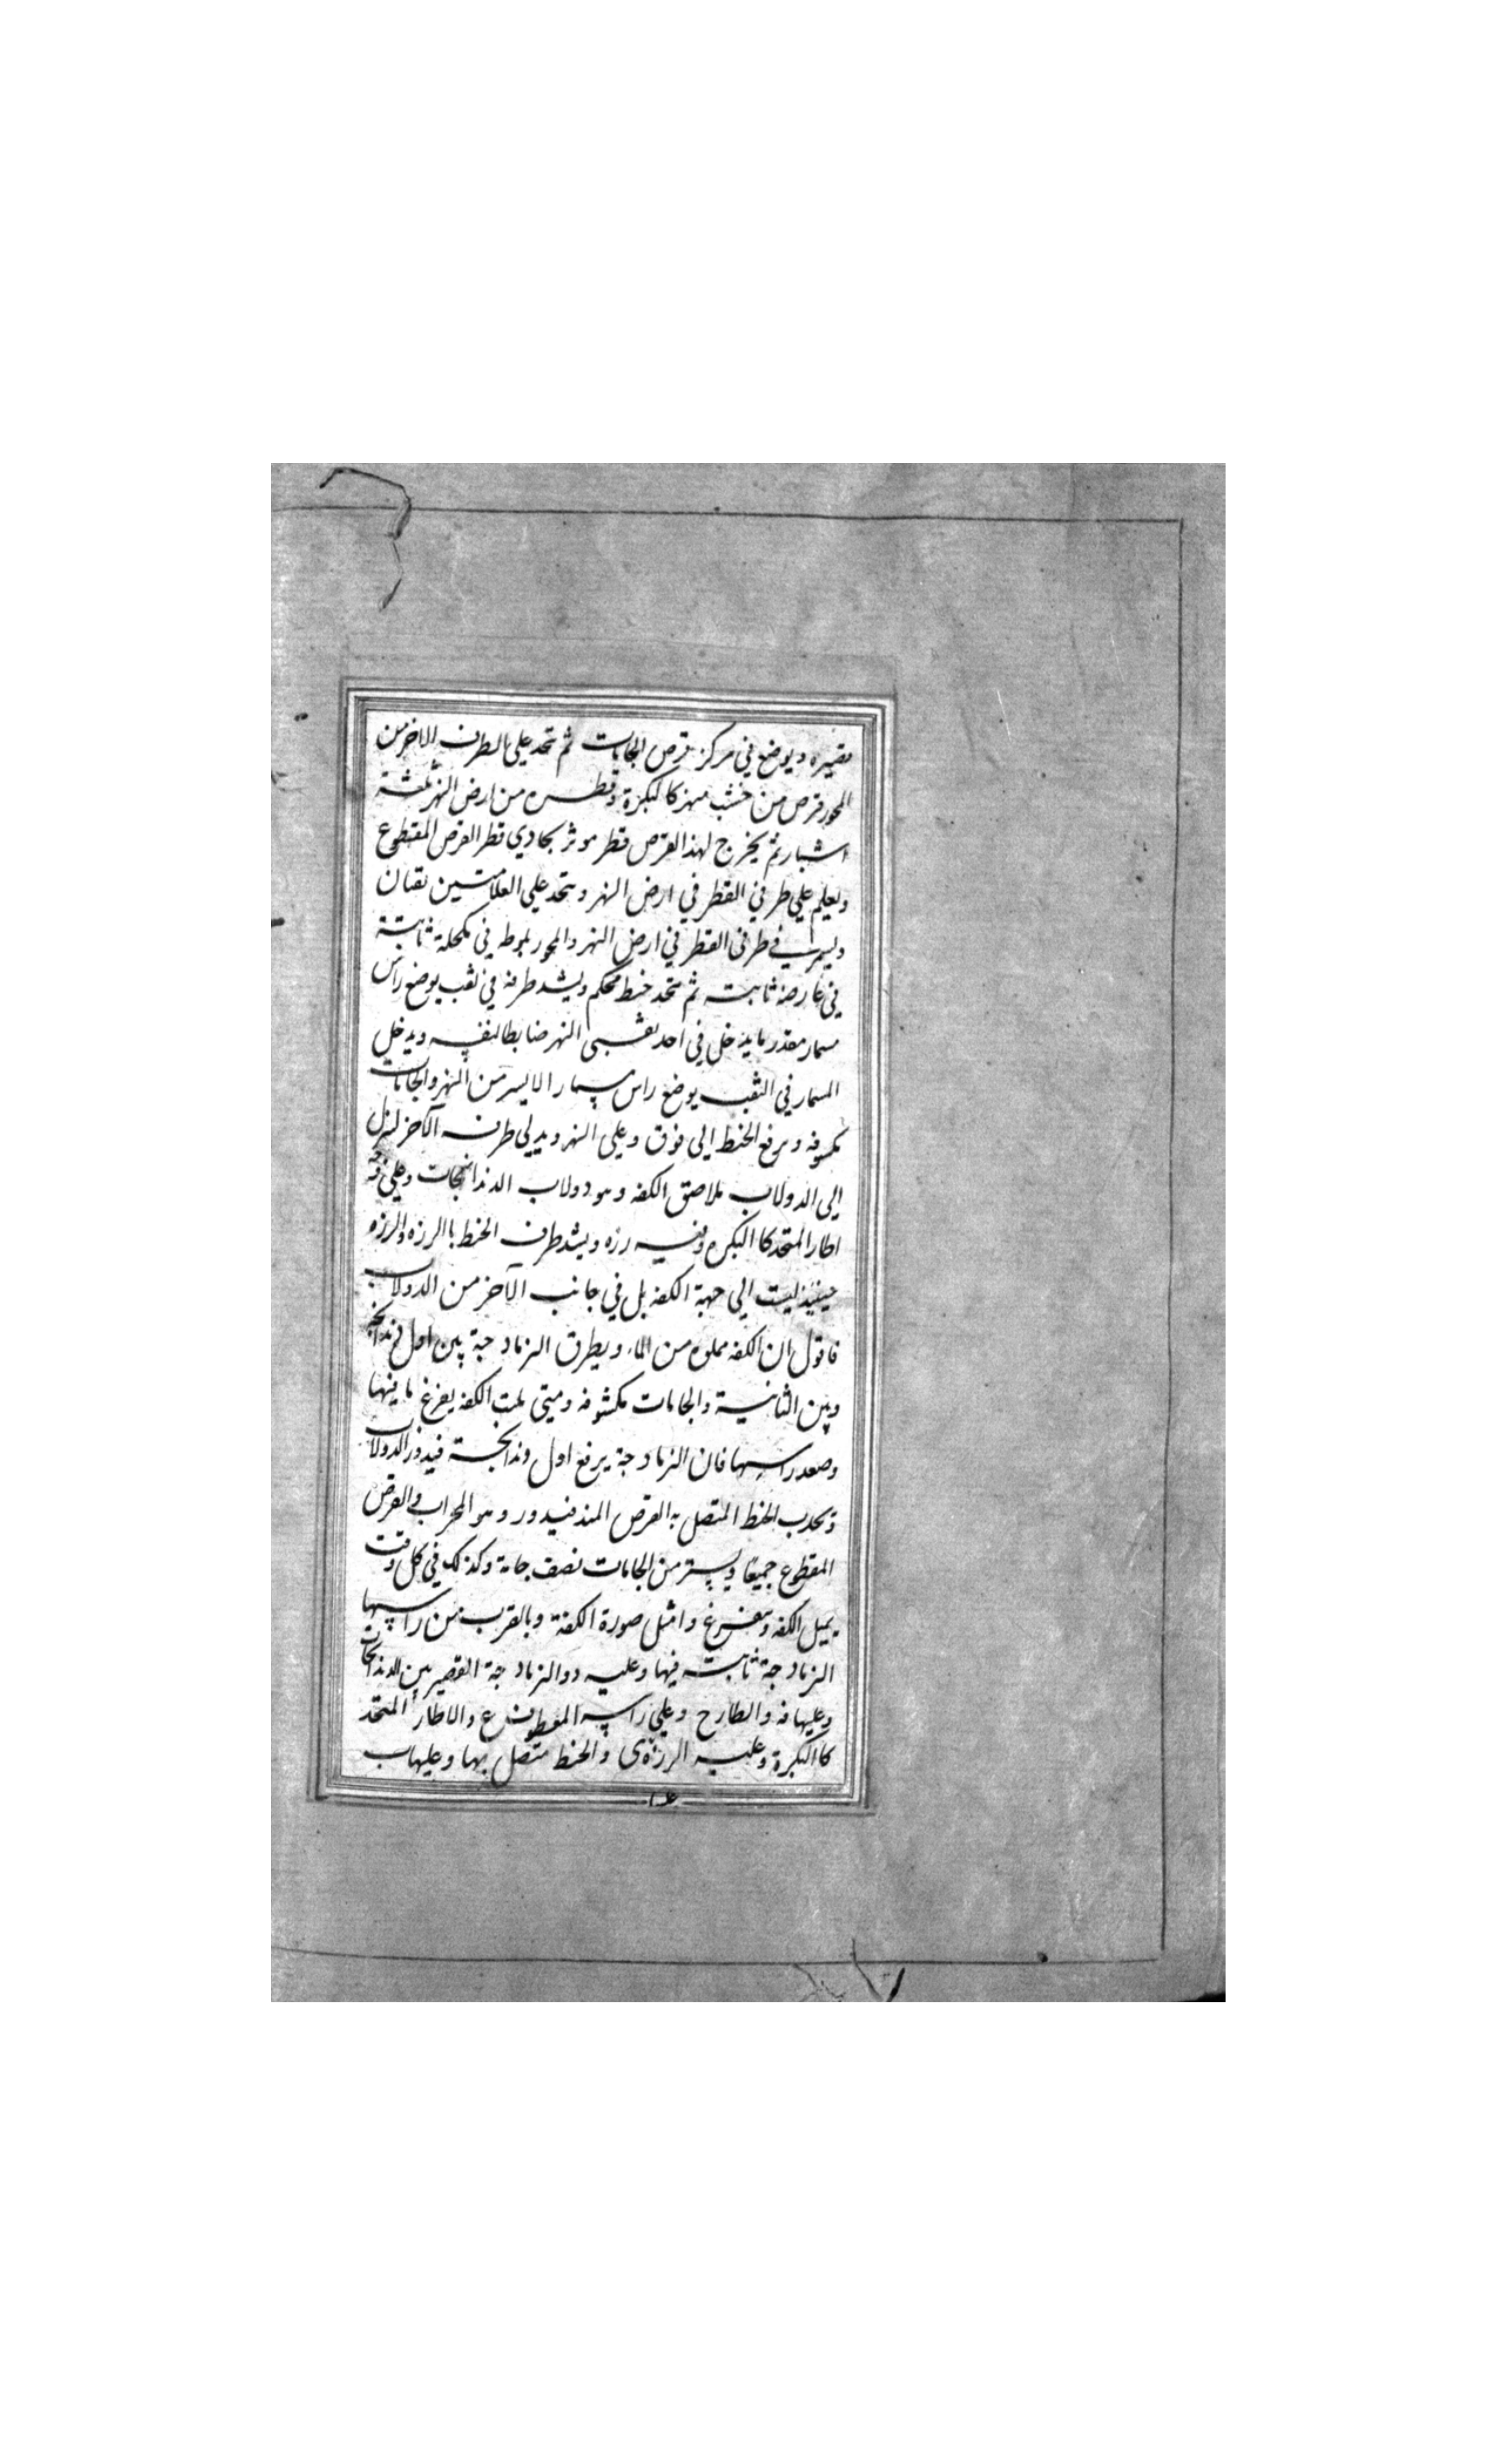 قصيره ويوضع في مركز قرص الجامات ثم تتخذ على الطرف الاخر من
المحور قرص من خشب مهز كالبكرة وقطره من ارض النهر ثلثة
اشبار ثم يخرج لهذا القرص قطر موثر يحادي قطر القرص المقطوع
ويعلم على طرفي القطر في ارض النهر ويتخذ على العلامتين نقبان
في طرفي القطر في ارض النهر والمحور في مكحلة ثابتة
في عارضة ثابتة ثم تتخذ خيط محكم ويشد طرفه في نقب يوضع راس
مسمار مقدر ما يدخل في احد نقبى النهر ضابطا لنفسه ويدخل
المسمار في الثقب يوضع راس مسمار الايسر من النهر والجامات
مكسوفه ويرفع الخيط الى فوق وعلى النهر ويدلى طرف الآخر لينزل
الى الدولاب ملاصق الكفه وهو دولاب الدندانجات وعلى
اطار المتخد كا البكره وفيه رزه ويشد طرف الخيط باالرزه والرزه
حينئذ ليست الى جهة الكفه بل في جانب الآخر من الدولاب
فاقول ان الكفه مملوه من الماء ويطرق الزنادجة بين اول دندانجة
وبين الثانية والجامات مكشوفه ومتى الكفه يفرغ ما فيها
وصعد راسها فان الزنادجة يرفع اول دندانجة فيدور الدولاب
ويجذب الخيط المتصل به القرص فيدور وهو المحراب والقرص
المقطوع جميعا ويستر من الجامات نصف جامة وكذلك في كل وقت
يميل الكفه وتفرغ وامثل صورة الكفة وبالقرب من راسها
الزنادجة ثابتة فيها وعليه د والزنادجة القصير بين الدندانجات
وعليها فه والطارح وعلى راسه المعطوف ع والاطار المتخد
كا البكرة وعليه الرزه ى والخيط متصل بها وعليها ب